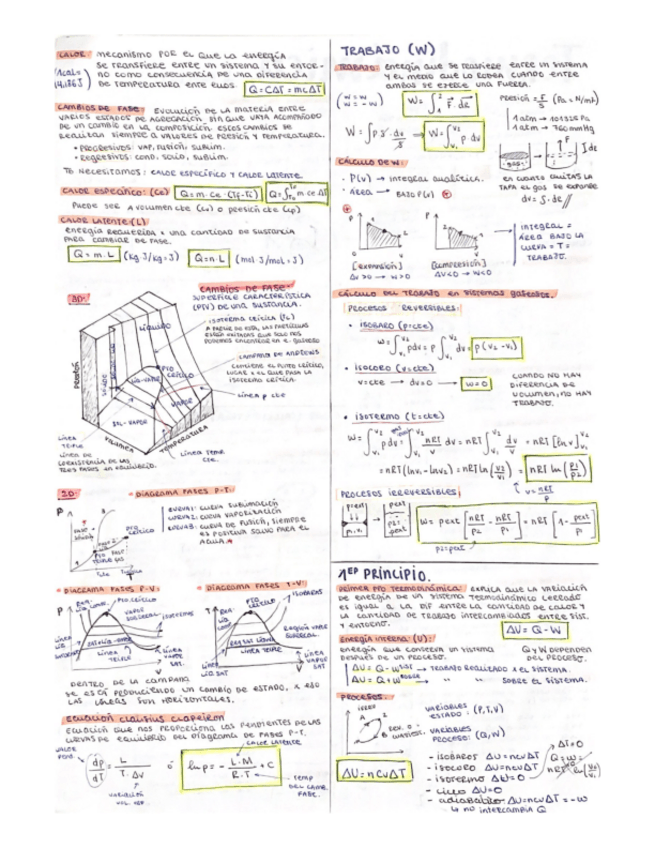 CALOR: mecanismo POR EL QUE LA ENERGÍA
SE TRANSFIERE ENTRE UN SISTEMA Y SU ENTOR-
NO COMO CONSECUENCIA DE UNA DIFERENCIA
DE TEMPERATURA ENTRE ELLOS. Q = CΔT = mcΔT
1cal =
4,186J
CAMBIOS DE FASE: EVOLUCIÓN DE LA MATERIA ENTRE
VARIOS ESTADOS DE AGREGACIÓN SIN QUE VAYA ACOMPAÑADO
DE UN CAMBIO EN LA COMPOSICIÓN. ESTOS CAMBIOS SE
REALIZAN SIEMPRE A VALORES DE PRESIÓN Y TEMPERATURA.
• PROGRESIVOS: VAP, FUSIÓN, SUBLIM.
• REGRESIVOS: COND, SOLID, SUBLIM.
NECESITAMOS: CALOR ESPECÍFICO Y CALOR LATENTE.
CALOR ESPECÍFICO: (Ce) Q = m·ce·(Tf-Ti)
PUEDE SER A VOLUMEN cte (Cv) O PRESIÓN cte (Cp)
CALOR LATENTE (L)
ENERGÍA REQUERIDA x UNA CANTIDAD DE SUSTANCIA
PARA CAMBIAR DE FASE.
Q = m·L (kg·J/kg = J) Q = n·L (mol·J/mol = J)
CAMBIOS DE FASE
3D:
SUPERFICIE CARACTERÍSTICA
(PTV) DE UNA SUSTANCIA.
ISOTERMA CRÍTICA (Tc)
A PARTIR DE ESTA, LAS PARTÍCULAS
CAMPANA DE ANDREWS
CONTIENE EL PUNTO CRÍTICO,
LUGAR x EL QUE PASA LA
ISOTERMA CRÍTICA.
LÍNEA P cte
PRESIÓN
LÍQUIDO
PTO
CRÍTICO
LÍQ-VAPOR
VAPOR
SOL-VAPOR
VOLUMEN
TEMPERATURA
LÍNEA
TRIPLE
LÍNEA TEMP
CTE.
LÍNEA DE
COEXISTENCIA DE LAS
TRES FASES EN EQUILIBRIO.
2D: • DIAGRAMA FASES P-T:
CURVA 1: CURVA SUBLIMACIÓN
CURVA 2: CURVA VAPORIZACIÓN
CURVA 3: CURVA DE FUSIÓN, SIEMPRE
ES POSITIVA SALVO PARA EL
AGUA.
• DIAGRAMA FASES P-V: • DIAGRAMA FASES T-V:
PTO. CRÍTICO
VAPOR
SOBRECAL.
ISOTERMAS
LÍNEA
TRIPLE
LÍNEA
VAPOR
SAT.
PTO.
CRÍTICO
ISOBARAS
REGIÓN VAPOR
SOBRECAL.
LÍNEA TRIPLE
LÍNEA
VAPOR
LÍQ SAT
DENTRO DE LA CAMPANA
SE ESTÁ PRODUCIENDO UN CAMBIO DE ESTADO, X ESO
LAS LÍNEAS SON HORIZONTALES.
ECUACIÓN CLAUSIUS CLAPEIRON
ECUACIÓN QUE NOS PROPORCIONA LAS PENDIENTES DE LAS
CURVAS DE EQUILIBRIO DEL DIAGRAMA DE FASES P-T.
CALOR LATENTE
dp/dT = L/T·ΔV ó ln p = - L·M/R·T + C
VARIACIÓN
TEMP
DEL CAMB.
FASE.
TRABAJO (W)
TRABAJO: ENERGÍA QUE SE TRASFIERE ENTRE UN SISTEMA
Y EL MEDIO QUE LO RODEA CUANDO ENTRE
AMBOS SE EJERCE UNA FUERZA.
PRESIÓN = F/S (Pa = N/m²)
1 atm → 101325 Pa
1 atm → 760 mmHg
EN CUANTO QUITAS LA
TAPA EL GAS SE EXPANDE
dv = S·dx
CÁLCULO DE W:
• P(v) → INTEGRAL ANALÍTICA.
• ÁREA → BAJO P(v)
INTEGRAL =
ÁREA BAJO LA
CURVA = T =
TRABAJO.
[EXPANSIÓN] [COMPRESIÓN]
ΔV>0 → W>0 ΔV<0 → W<0
CÁLCULO DEL TRABAJO EN SISTEMAS GASEOSOS.
PROCESOS REVERSIBLES:
• ISOBARO (p=cte)
p(V₂-V₁)
• ISOCORO (v=cte)
v=cte → dv=0 → W=0
CUANDO NO HAY
DIFERENCIA DE
VOLUMEN, NO HAY
TRABAJO.
• ISOTERMO (t=cte)
= nRT(ln v₂ - ln v₁) = nRT ln(v₂/v₁) = nRT ln(p₁/p₂)
PROCESOS IRREVERSIBLES:
W = pext [nRT/p₂ - nRT/p₁] = nRT [1 - pext/p₁]
p₂=pext
1er PRINCIPIO.
PRIMER PPO TERMODINÁMICA: EXPLICA QUE LA VARIACIÓN
DE ENERGÍA DE UN SISTEMA TERMODINÁMICO CERRADO
ES IGUAL A LA DIF ENTRE LA CANTIDAD DE CALOR Y
LA CANTIDAD DE TRABAJO INTERCAMBIADOS ENTRE SIST.
Y ENTORNO.
ΔU = Q - W
ENERGÍA INTERNA: (U):
ENERGÍA QUE CONSERVA UN SISTEMA
DESPUÉS DE UN PROCESO.
Q y W DEPENDEN
DEL PROCESO.
TRABAJO REALIZADO x EL SISTEMA.
SOBRE EL SISTEMA.
PROCESOS:
VARIABLES
ESTADO: (P,T,V)
VARIABLES
PROCESO: (Q,W)
ΔU = ncvΔT
- ISOBAROS ΔU = ncvΔT
- ISOCORO ΔU = ncvΔT
- ISOTERMO ΔU = 0
- CICLO ΔU = 0
- ADIABÁTICO ΔU = ncvΔT = -W
NO INTERCAMBIA Q